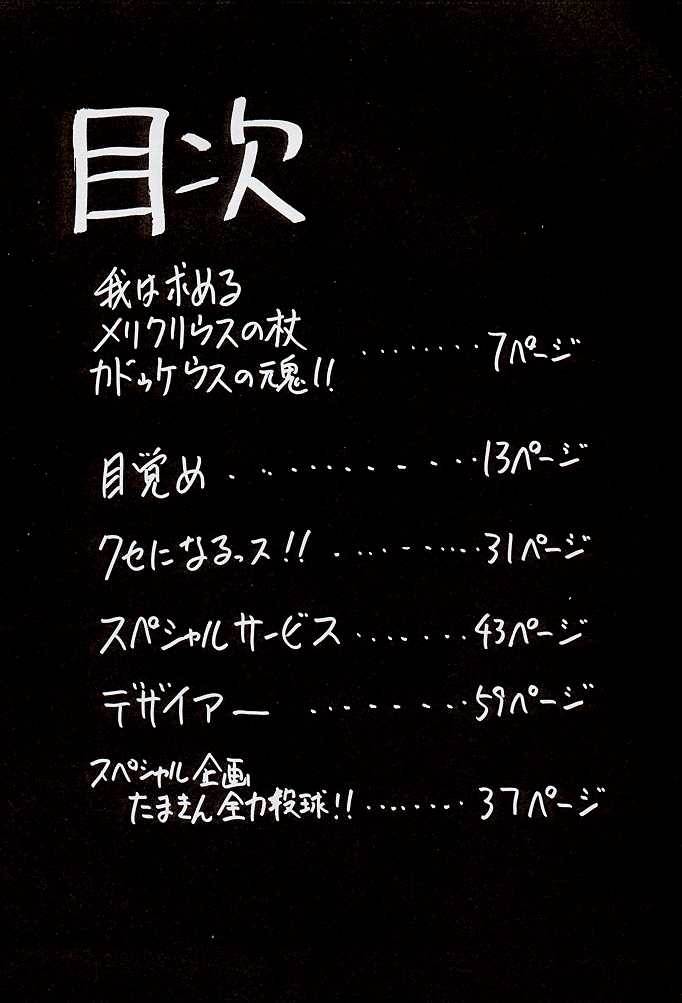 目次
我は求める
メリクリウスの杖
カドゥケウスの魂!! ........ 7ページ
目覚め ........... 13ページ
クセになるっス!! ......... 31ページ
スペシャルサービス ........ 43ページ
デザイアー ........ 59ページ
スペシャル企画
たまきん全力投球!! ........ 37ページ